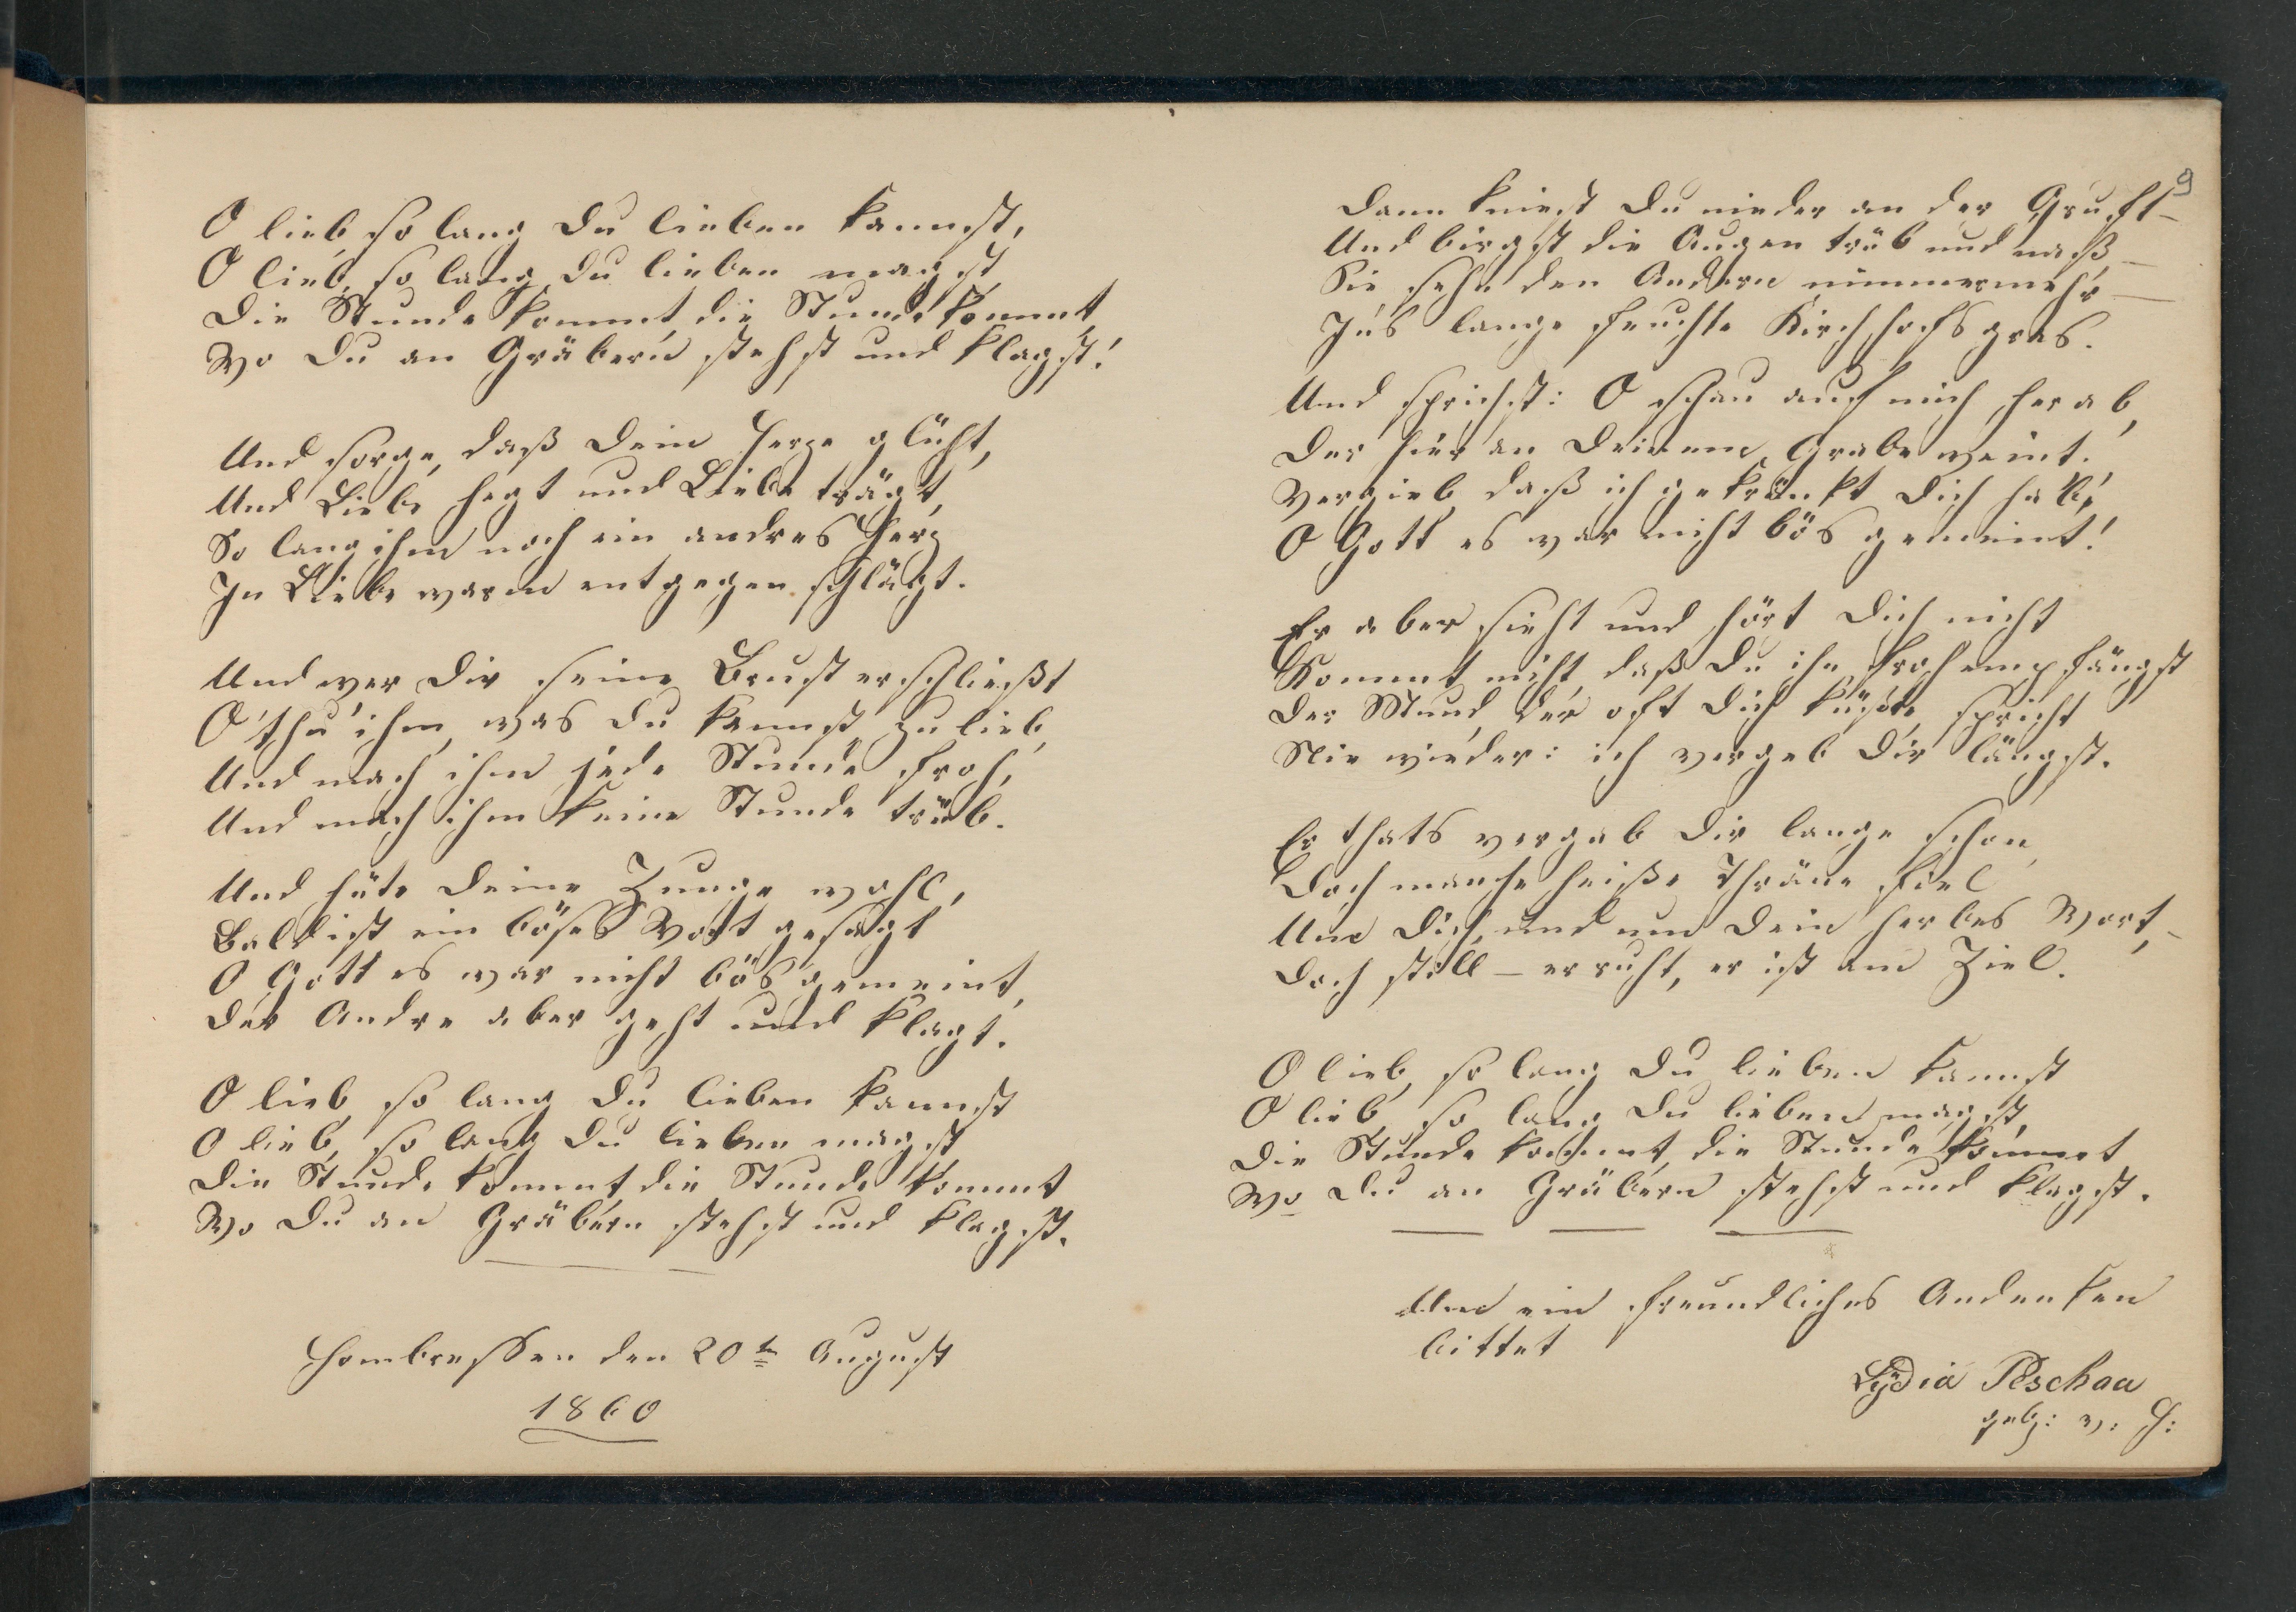 O lieb so lang Du lieben kannst,
O lieb, so lang Du lieben magst,
Die Stunde kommt, die Stunde kommt,
Wo Du an Gräbern stehst und klagst!
Und sorge, daß Dein Herze glüht,
Und Liebe hegt und Liebe trägt,
So lang ihm noch ein andres Herz
In Liebe warm entgegen schlägt.
Und wer Dir seine Brust erschließt
O thu' ihm, was Du kannst, zu lieb,
Und mach ihm jede Stunde froh,
Und mach ihm keine Stunde trüb.
Und hüte Deine Zunge wohl,
Bald ist ein böses Wort gesagt
O Gott es war nicht bös gemeint,
Der Andre aber geht und klagt.
O lieb, so lang Du lieben kannst
O lieb, so lang Du lieben magst
Die Stunde kommt, die Stunde kommt
Wo Du an Gräbern stehst und klagst.
Hombressen den 20t August
1860
9
Dann kniest Du nieder an der Gruft –
Und birgst die Augen trüb und naß –
Sie sehn den Andern nimmermehr –
Ins lange feuchte Kirchhofsgras.
Und sprichst: O schau auf mich herab,
Der hier an Deinem Grabe weint.
Vergieb, daß ich gekränkt Dich hab',
O Gott es war nicht bös gemeint!
Er aber sieht und hört Dich nicht
Kommt nicht, daß Du ihn froh empfängst
Der Mund, der oft Dich küßte, spricht
Nie wieder: ich vergab Dir längst.
Er thats vergab Dir lange schon,
Doch manche heiße Thräne fiel
Um Dich, und um Dein herbes Wort, –
Doch still – er ruht, er ist am Ziel.
O lieb, so lang Du lieben kannst
O lieb, so lang Du lieben magst,
Die Stunde kommt, die Stunde kommt
Wo Du an Gräbern stehst und klagst.
Um ein freundliches Andenken
bittet
Lydia Peschau
geb: v. H: